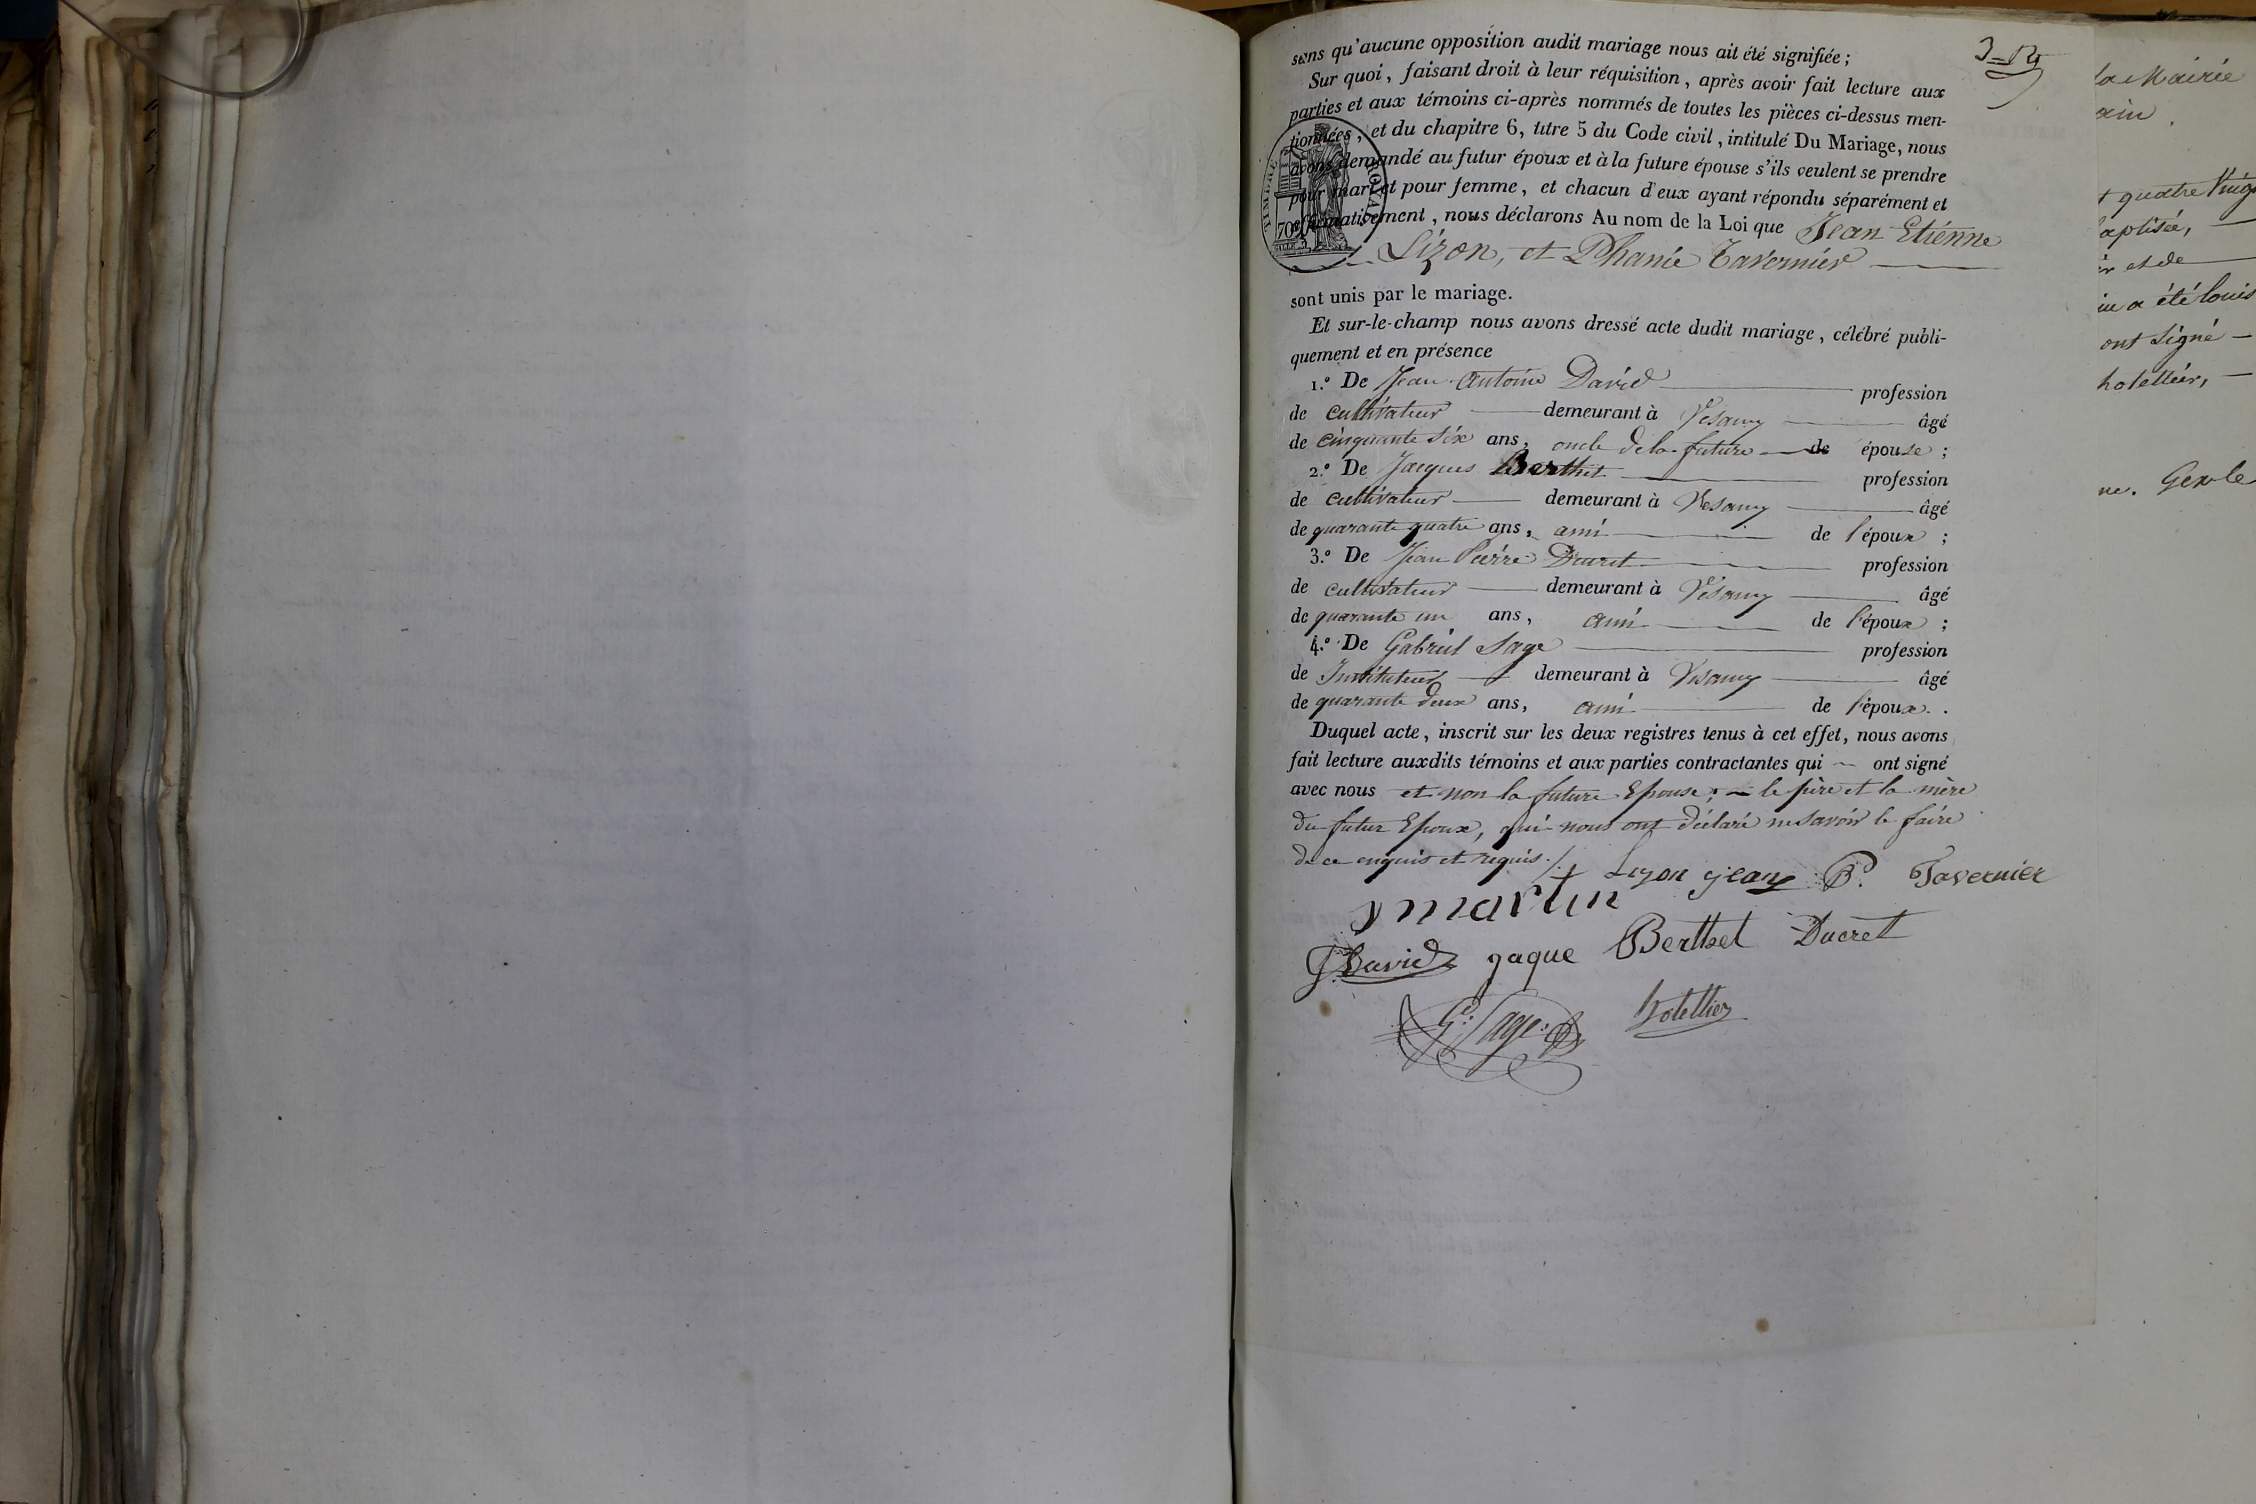 sans qu'aucune opposition audit mariage nous ait été signifiée ;
Sur quoi, faisant droit à leur réquisition, après avoir fait lecture aux
parties et aux témoins ci-après nommés de toutes les pièces ci-dessus men-
tionnées, et du chapitre 6, titre 5 du Code civil, intitulé Du Mariage, nous
avons demandé au futur époux et à la future épouse s'ils veulent se prendre
pour mari et pour femme, et chacun d'eux ayant répondu séparément et
affirmativement, nous déclarons Au nom de la Loi que Jean Etiénne
Lizon, et Phanie Tavernier
sont unis par le mariage.
Et sur-le-champ nous avons dressé acte dudit mariage, célébré publi-
quement et en présence
1.º De Jean Antoine David profession
de cultivateur demeurant à Vésancy âgé
de cinquante six ans, oncle de la future de épouse ;
2.º De Jacques Berthet profession
de cultivateur demeurant à Vesancy âgé
de quarante quatre ans, ami de l'époux ;
3.º De Jean Pierre Ducret profession
de cultivateur demeurant à Vésancy âgé
de quarante un ans, ami de l'époux ;
4.º De Gabriel Sage profession
de Instituteur demeurant à Vesancy âgé
de quarante deux ans, ami de l'époux.
Duquel acte, inscrit sur les deux registres tenus à cet effet, nous avons
fait lecture auxdits témoins et aux parties contractantes qui ont signé
avec nous et non la future Epouse, le père et la mère
du futur Epoux, qui nous ont déclaré ne savoir le faire
de ce enquis et requis ./.
Lizon jean P. Tavernier
martin
J. David jaque Berthet Ducret
G. Sage hotellier
TIMBRE ROYAL
70
la Mairie
ain.
t quatre Vingt
baptisée,
et de
a été louis
ont Signé
hotellier,
Gex le